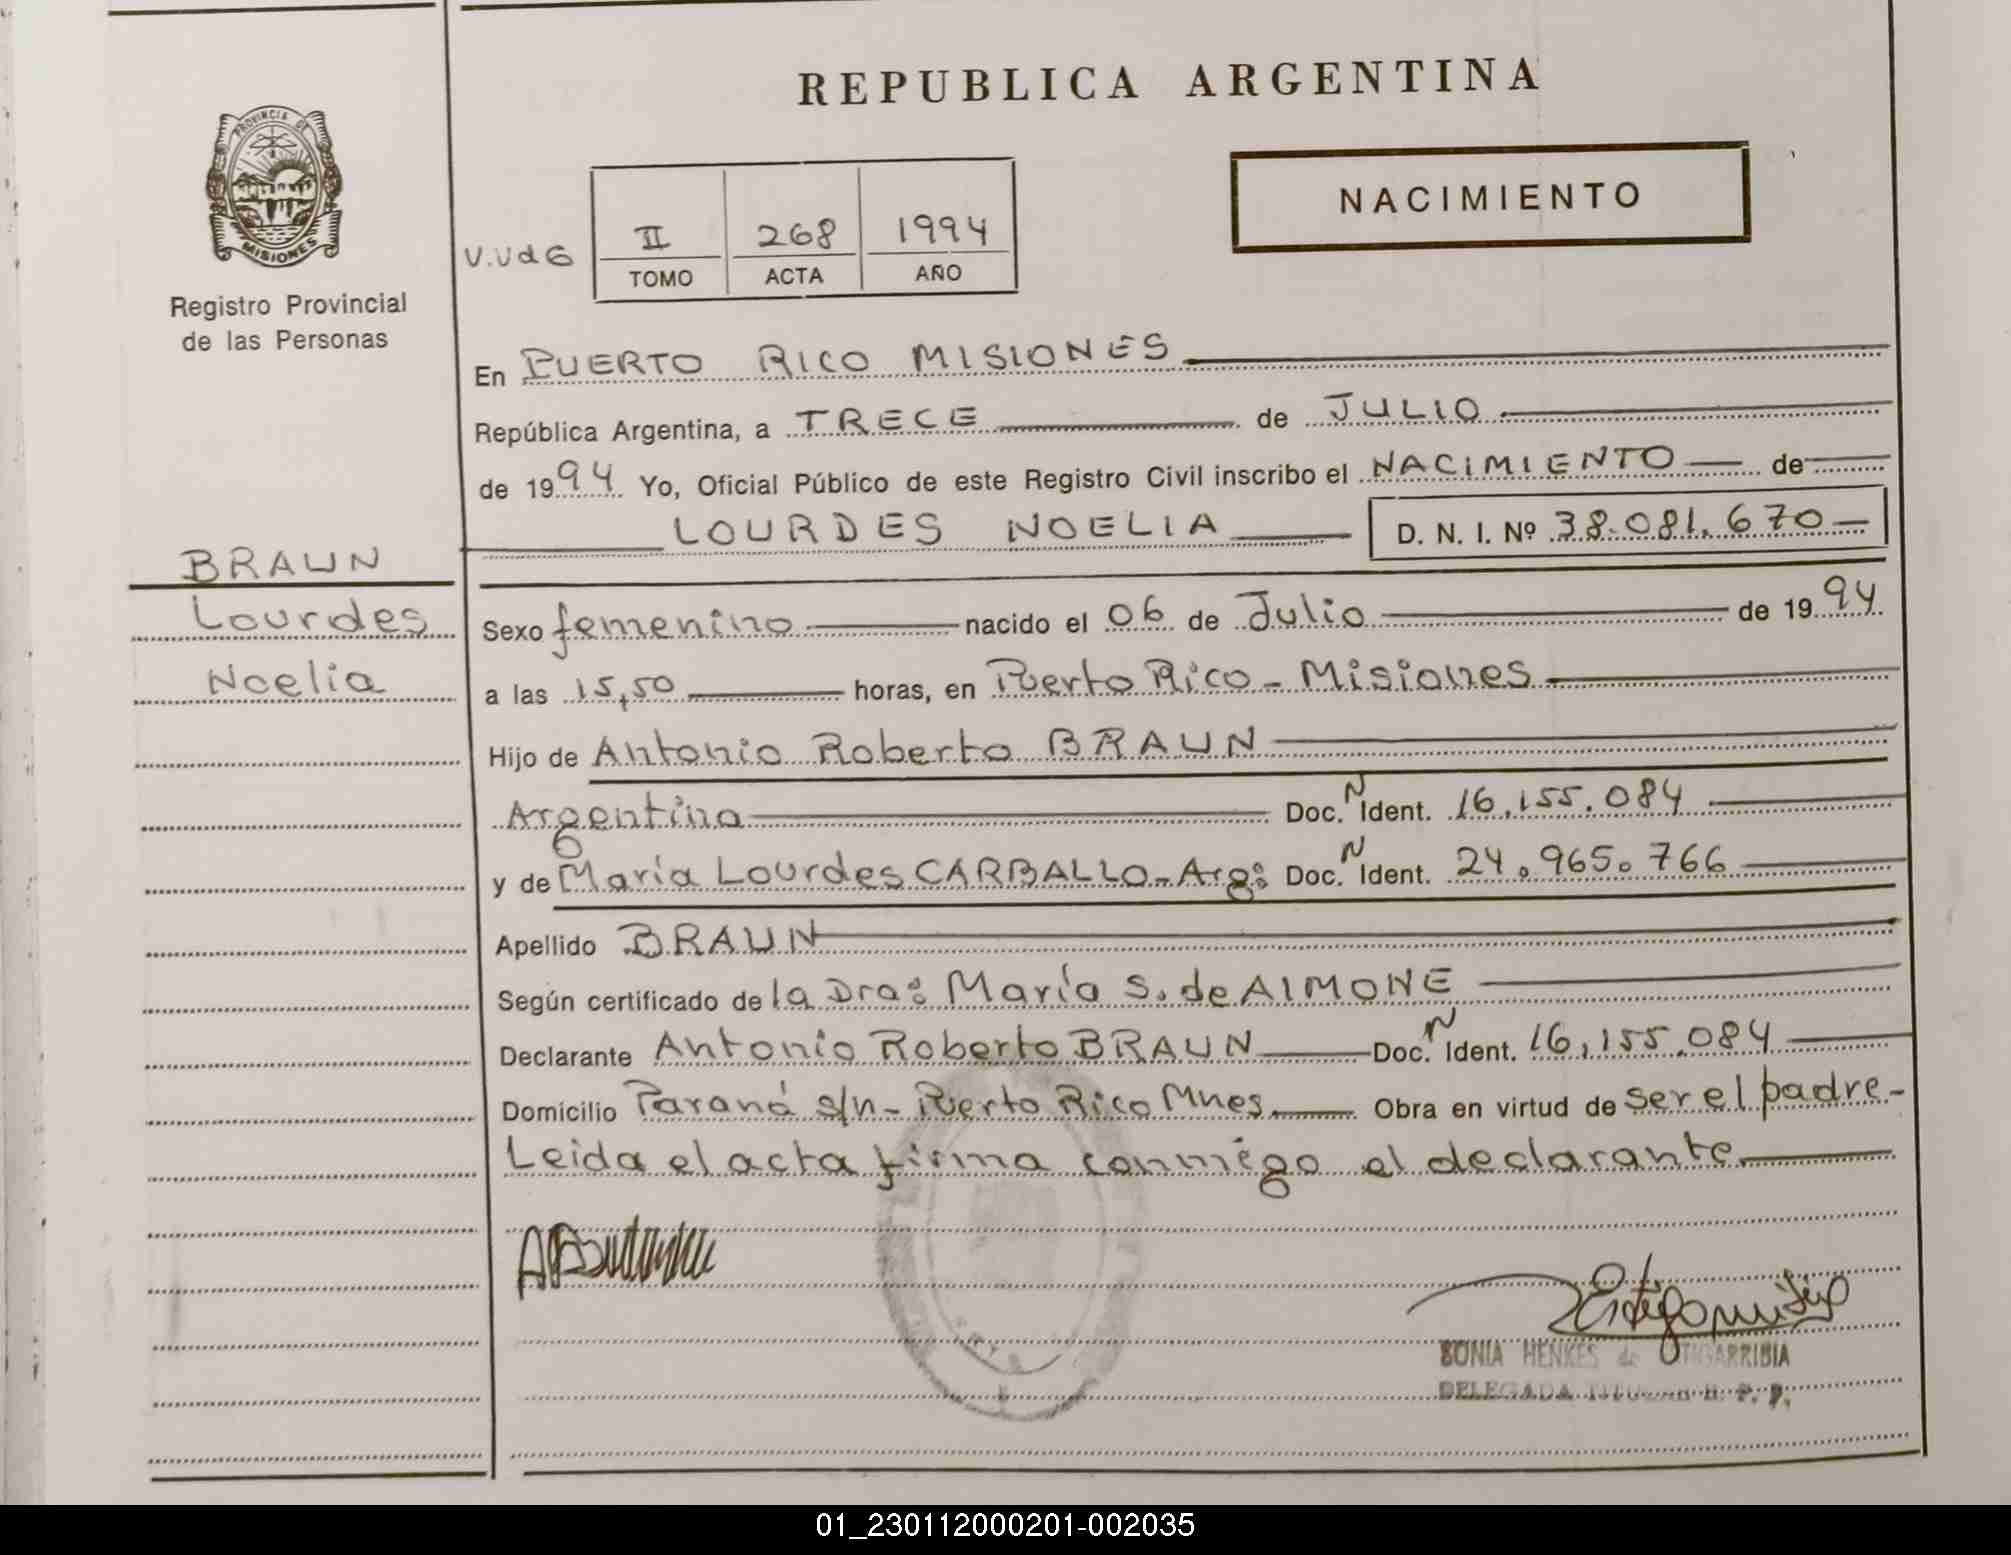 REPUBLICA ARGENTINA
PROVINCIA DE
MISIONES
Registro Provincial
de las Personas
NACIMIENTO
V.VdG
II 268 1994
TOMO ACTA AÑO
En PUERTO RICO MISIONES
República Argentina, a TRECE de JULIO
de 1994 Yo, Oficial Público de este Registro Civil inscribo el NACIMIENTO de
LOURDES NOELIA D. N. I. Nº 38.081.670
BRAUN
Lourdes
Noelia
Sexo femenino nacido el 06 de Julio de 1994
a las 15,50 horas, en Puerto Rico - Misiones
Hijo de Antonio Roberto BRAUN
Argentina Doc. N Ident. 16.155.084
y de María Lourdes CARBALLO - Arg: Doc. N Ident. 24.965.766
Apellido BRAUN
Según certificado de la Dra: María S. de AIMONE
Declarante Antonio Roberto BRAUN Doc. N Ident. 16,155.084
Domicilio Paraná s/n - Puerto Rico Mnes. Obra en virtud de ser el padre -
Leida el acta firma conmigo el declarante
SONIA HENKES de
DELEGADA TITULAR R. P. P.
01_230112000201-002035